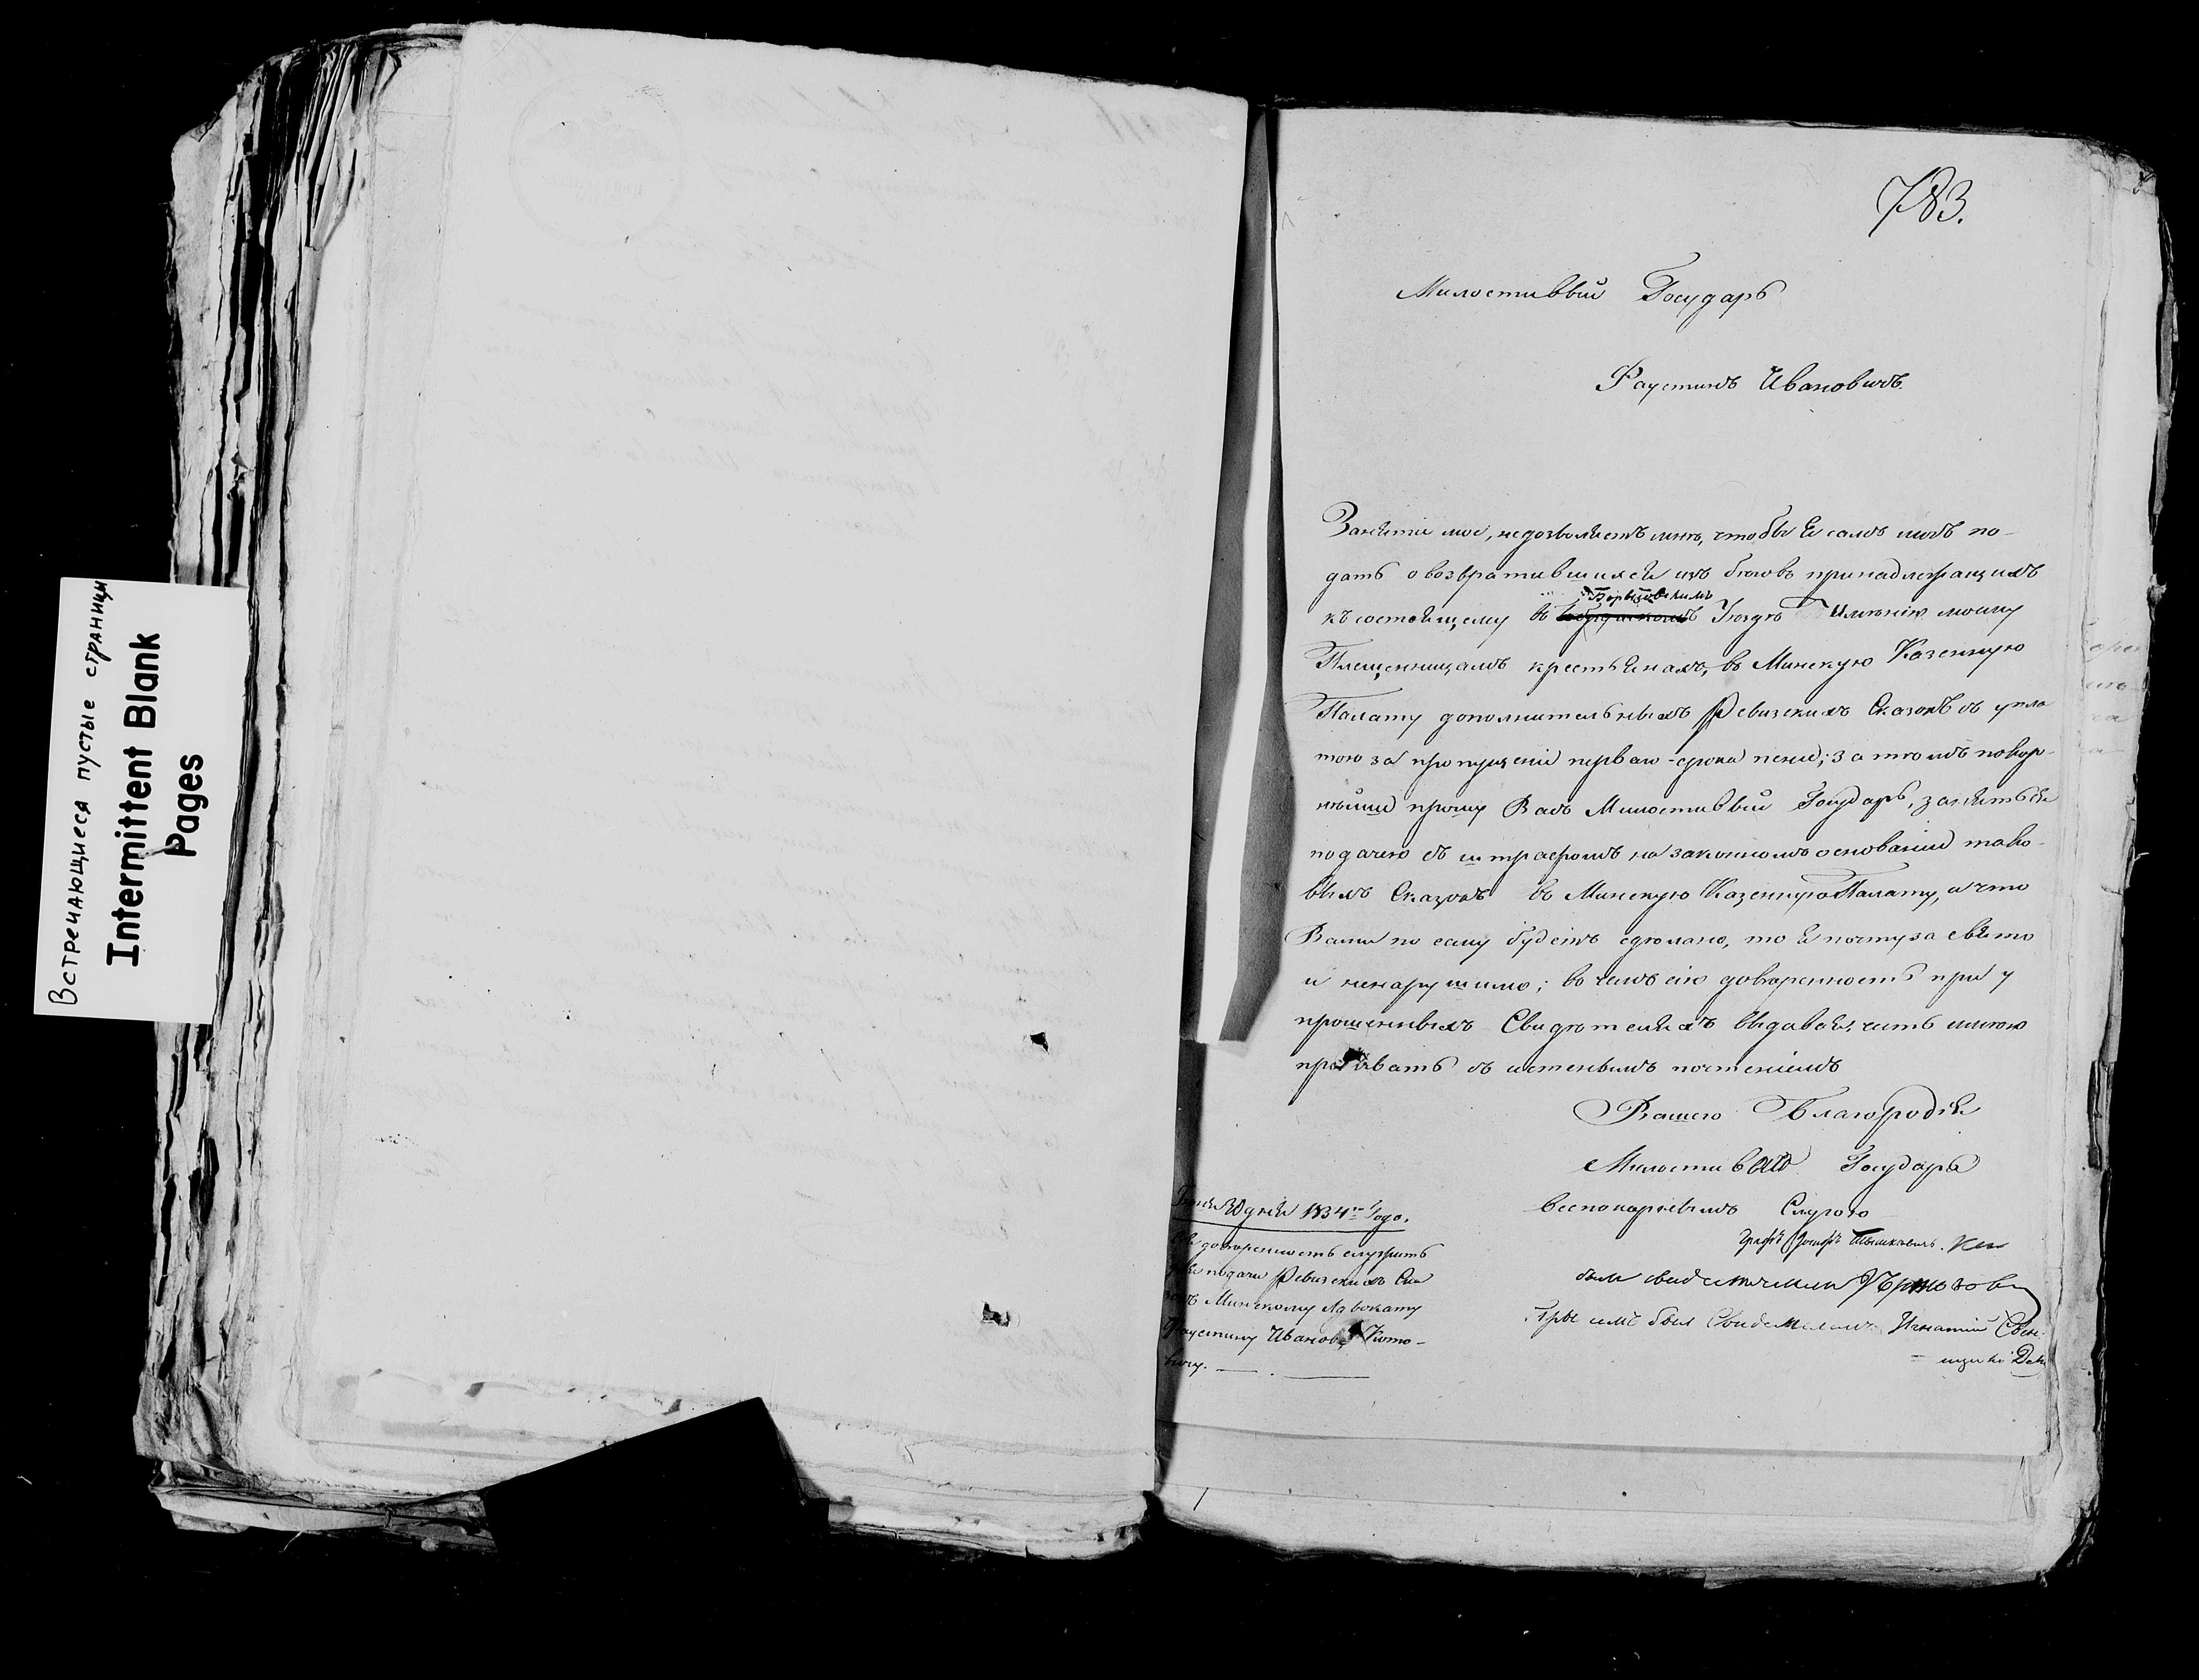 Встречающиеся пустые страницы
Intermittent Blank
Pages
783.
Милостивый Государь
Фаустинъ Ивановичъ.
Занятіе мое, недозволяетъ мнѣ, чтобы я самъ могъ по-
дать о возвратившихся изъ бѣговъ принадлежащихъ
Борисовскимъ
къ состоящему въ Уѣздѣ Имѣнію моему
Плещенницамъ крестьянахъ, въ Минскую Казенную
Палату дополнительныхъ Ревизскихъ Сказокъ съ упла
тою за пропущеніе перваго срока пени; за тѣмъ покор-
нѣйше прошу Васъ Милостивый Государь, заняться
подачею съ штрафомъ на законномъ основаніи тако-
выхъ Сказокъ въ Минскую Казенную Палату, и что
Вами по сему будетъ сдѣлано, то я почту за свято
и ненарушимо; въ чемъ сію доверенность при у
прошенныхъ Свидѣтеляхъ выдавая, честь имѣю
пребывать съ истеннымъ почтеніемъ
Вашего Благородія
Милостивый Государь
всепокорнымъ Слугою
Графъ Іосифъ Тышкевичъ.
Іюня 30 дня 1834го Года.
доверенность служитъ
подачи Ревизскихъ Ска
Минскому Адвокату
Фаустину Иванову Кото-
вичу.
былъ свидетелемъ
При семъ был Свидетелемъ Игнатий